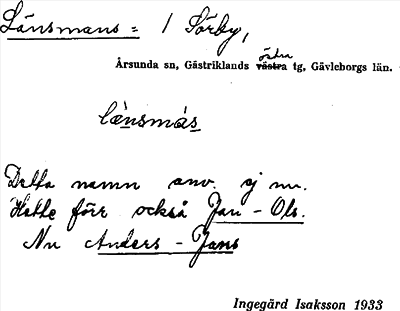 Länsmans = / Sörby,
östra
Årsunda sn, Gästriklands västra tg, Gävleborgs län.
lænsmás
Detta namn anv. ej nu.
Hette förr också Jan - Ols.
Nu Anders - Jans
Ingegärd Isaksson 1933